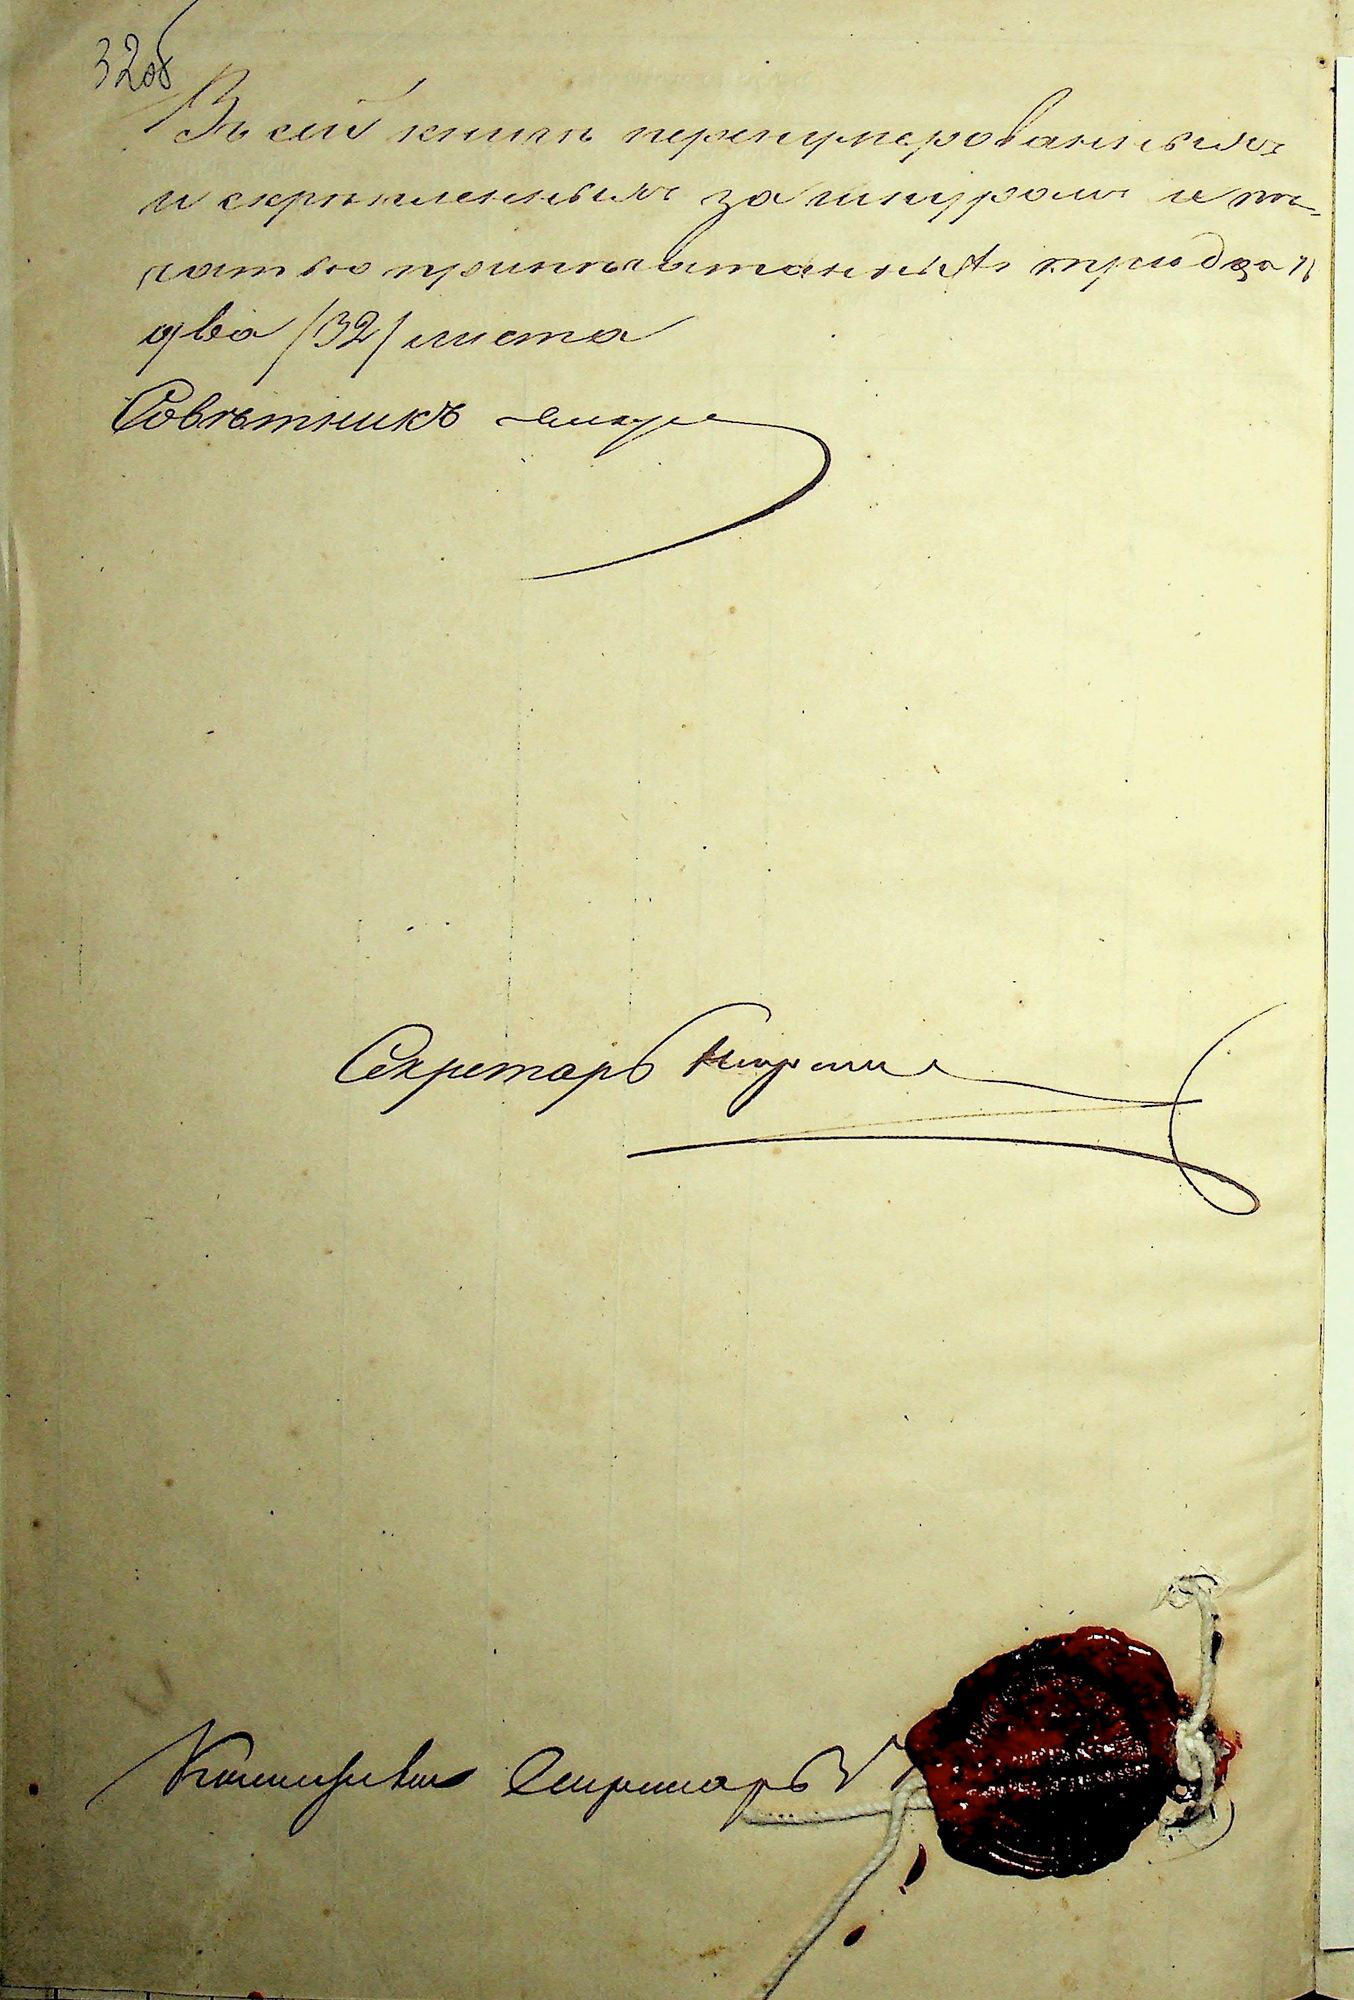 32об
Въ сей книгѣ перенумерованныхъ
и скрѣпленныхъ за шнуромъ и пе-
чатью припечатанныхъ тридца
два /32/ листа
Совѣтникъ
Секретарь
Секретарь